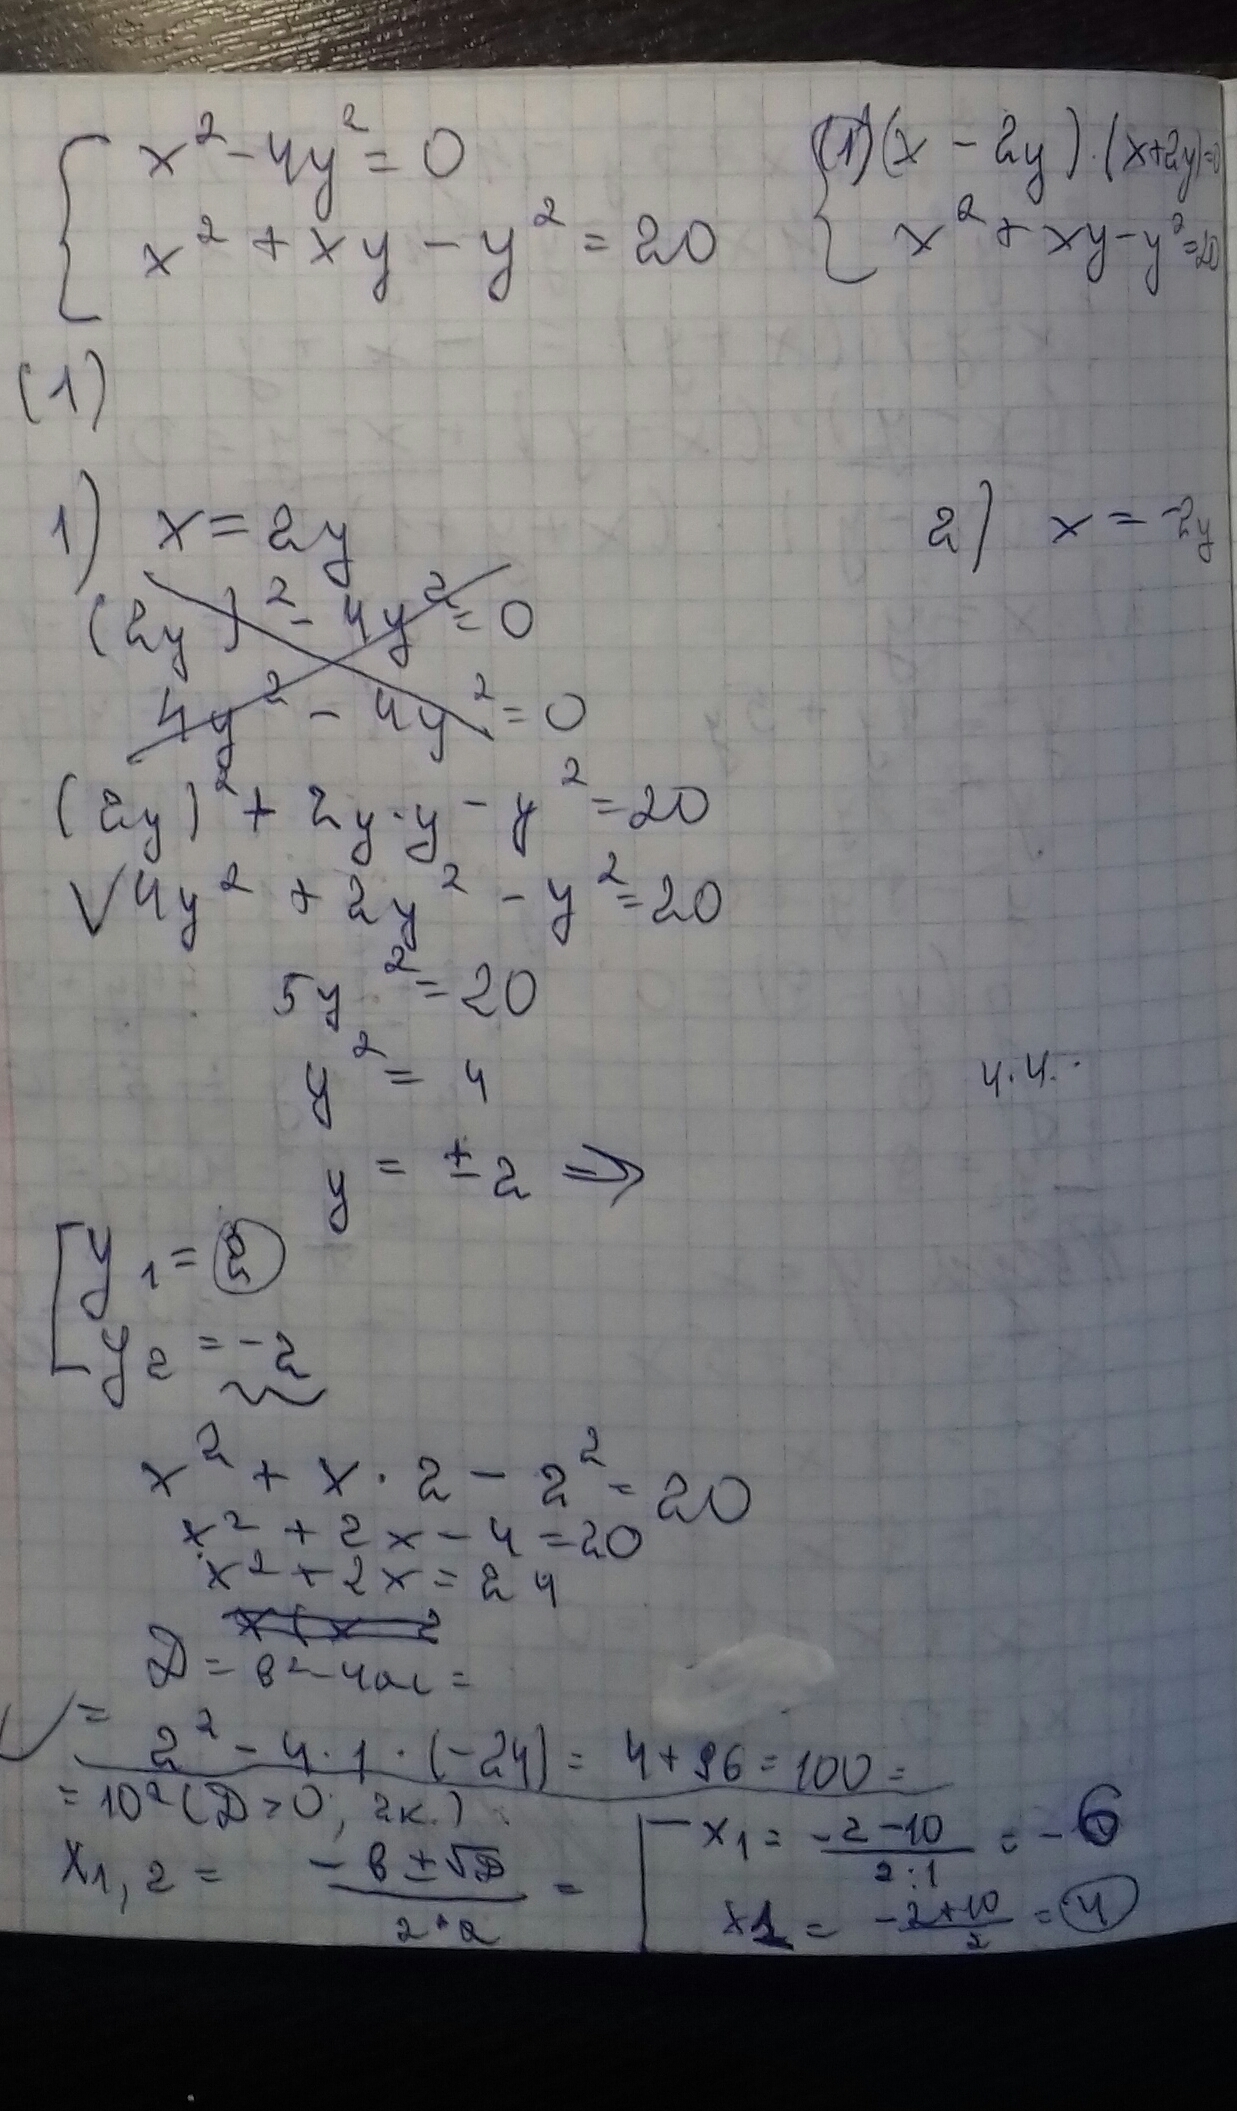 x² - 4y² = 0
x² + xy - y² = 20
(1) (x - 2y) · (x + 2y) = 0
x² + xy - y² = 20
(1)
1) x = 2y
2) x = -2y
(2y)² - 4y² = 0
4y² - 4y² = 0
(2y)² + 2y · y - y² = 20
√4y² + 2y² - y² = 20
5y² = 20
y² = 4
4.4.
y = ± 2 ⇒
y₁ = 2
y₂ = -2
x² + x · 2 - 2² = 20
x² + 2x - 4 = 20
x² + 2x = 24
D = в² - 4ac =
= 2² - 4 · 1 · (-24) = 4 + 96 = 100 =
= 10² (D > 0, 2к.)
x₁,₂ = (-в ± √D) / (2·a) =
x₁ = (-2 - 10) / (2·1) = -6
x₂ = (-2 + 10) / 2 = 4